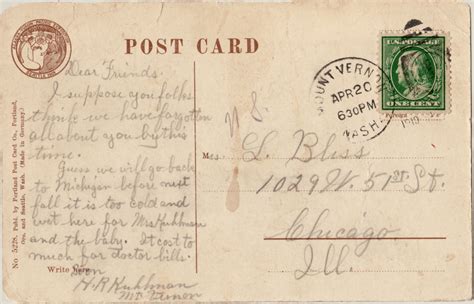 POST CARD
Dear Friends.
I suppose you folks
think we have forgotten
all about you by this
time.
Guess we will go back
to Michigan before next
fall it is too cold and
wet here for Mrs Kuhlman
and the baby. It cost to
much for doctor bills.
H.R Kuhlman
Mt Vernon
Write here
No. 5228. Publ. by Portland Post Card Co., Portland,
Ore. and Seattle, Wash. (Made in Germany.)
SEATTLE
MOUNT VERNON
APR 20
630PM
WASH.
1910
U.S. POSTAGE
ONE CENT
Mrs. L. Bliss
1029 W. 51st St.
Chicago,
Ill.